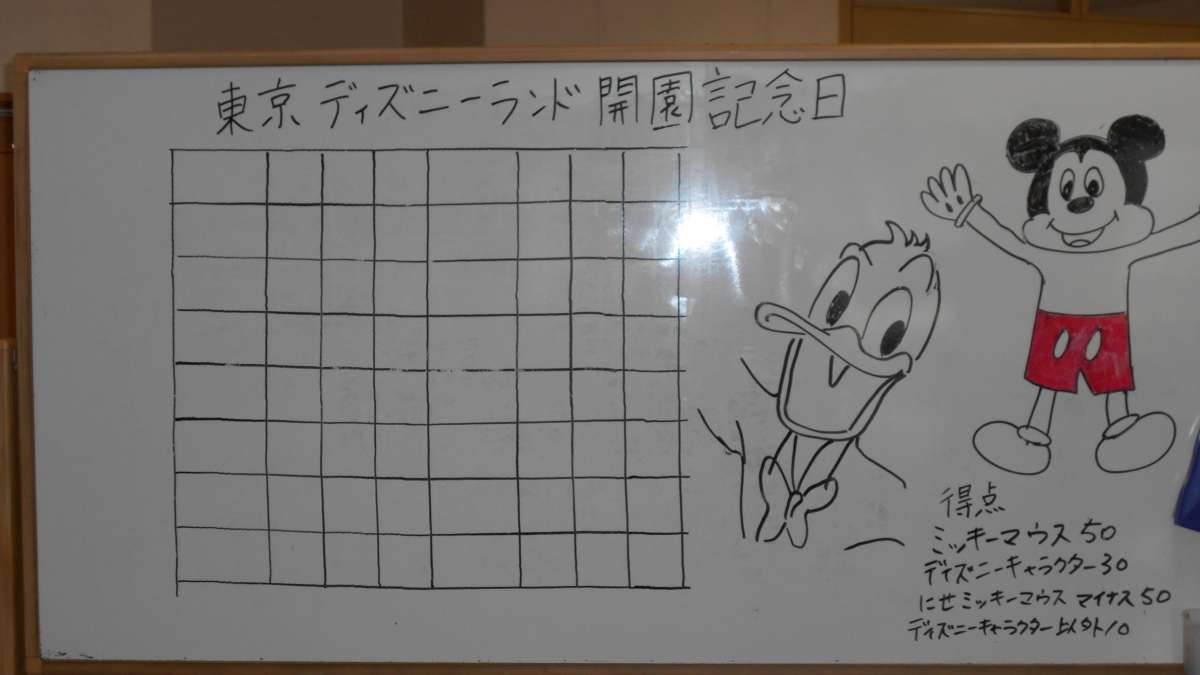 東京ディズニーランド開園記念日
得点
ミッキーマウス 50
ディズニーキャラクター 30
にせミッキーマウス マイナス 50
ディズニーキャラクター以外 10